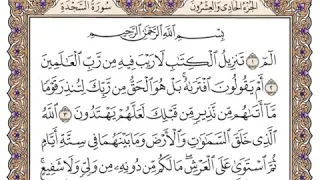 الجزء الحادي والعشرون سورة السجدة
بِسْمِ ٱللَّهِ ٱلرَّحْمَٰنِ ٱلرَّحِيمِ
الٓمٓ ١ تَنزِيلُ ٱلْكِتَٰبِ لَا رَيْبَ فِيهِ مِن رَّبِّ ٱلْعَٰلَمِينَ
٢ أَمْ يَقُولُونَ ٱفْتَرَىٰهُ بَلْ هُوَ ٱلْحَقُّ مِن رَّبِّكَ لِتُنذِرَ قَوْمًا
مَّآ أَتَىٰهُم مِّن نَّذِيرٍ مِّن قَبْلِكَ لَعَلَّهُمْ يَهْتَدُونَ ٣ ٱللَّهُ
ٱلَّذِى خَلَقَ ٱلسَّمَٰوَٰتِ وَٱلْأَرْضَ وَمَا بَيْنَهُمَا فِى سِتَّةِ أَيَّامٍ
ثُمَّ ٱسْتَوَىٰ عَلَى ٱلْعَرْشِ مَا لَكُم مِّن دُونِهِۦ مِن وَلِىٍّ وَلَا شَفِيعٍ